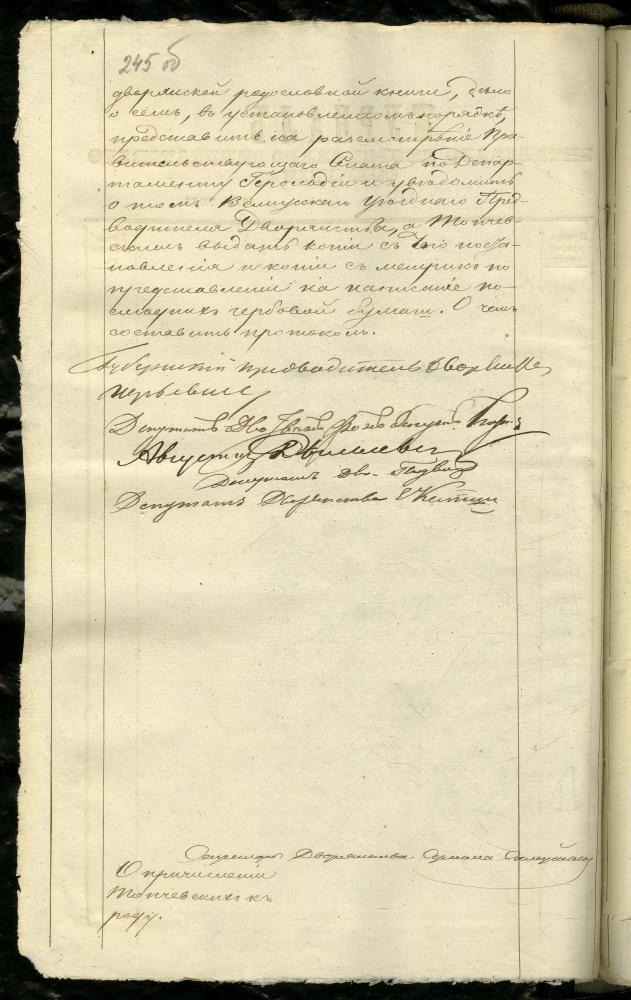 245 об
дворянской родословной книги, дѣло
о семъ, въ установленномъ порядкѣ,
представить на разсмотрѣніе Пра-
вительствующаго Сената по Депар-
таменту Герольдіи и увѣдомить
о томъ Уѣзднаго Пред-
водителя Дворянства, а Топчев-
скимъ выдать копіи съ сего поста-
новленія и копіи съ метрикъ по
представленіи на написаніе по-
слѣднихъ гербовой бумаги. О чемъ
составить протоколъ.
Губернскій предводитель дворянства
Депутатъ
Августъ
Депутатъ Дво.
Депутатъ Дворянства
Секретарь Дворянства
О причисленіи
Топчевскихъ къ
роду.